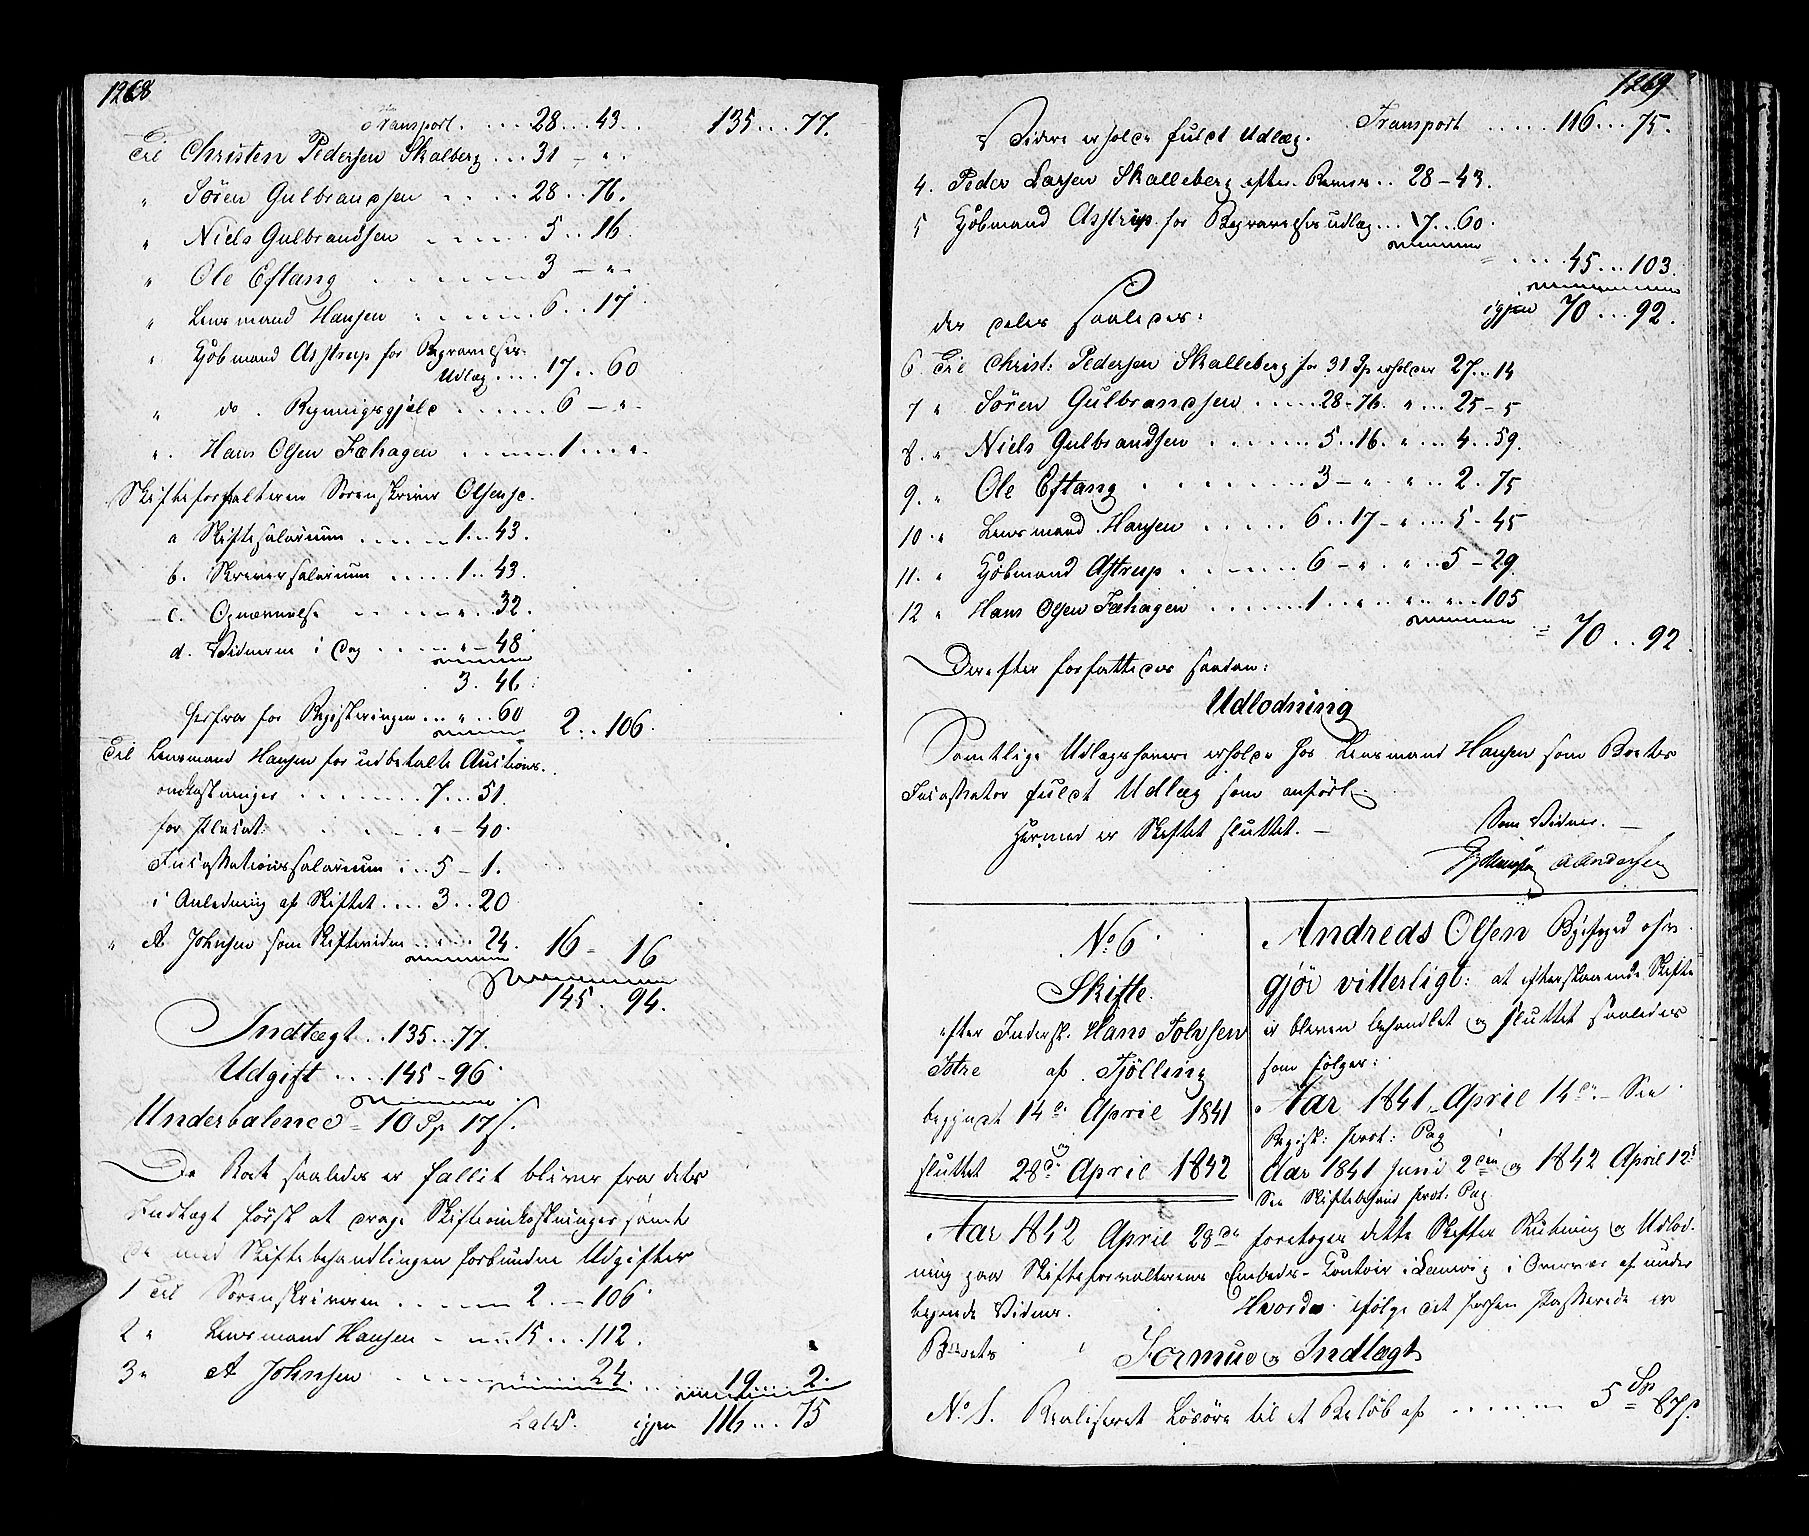 1268
Transport. . . . 28 . . 43 . . 135 . . . 77.
Til Christen Pedersen Skalberg . . . 31 – " .
" Sören Gulbrandsen . . . . . 28 . . 76.
" Niels Gulbrandsen . . . . . 5 . . 16
" Ole Eftang . . . . . . . 3 – " –
" Lensmand Hansen . . . . . . 6 . . 17
" Kjöbmand Asstrup for Begravelses-
Udlæg . . . . 17 . . 60
" do . Regningsgjeld . . . . . 6 – " .
" Hans Olsen Fæhagen . . . . . 1 . . . " .
Skifteforvalteren Sorenskriver Olsen sc.
a Skiftesalarium . . . . . 1 . . 43.
b. Skriversalarium . . . . . 1 . . 43.
c. Opnævnelse . . . . . " . . 32.
d. Vidnerne i dag . . . . . " – 48
3. 46.
herfra for Registeringen . . . " . . 60 2 . . 106.
Til Lensmand Hansen for udbetalte Auctions-
omkostninger . . . . . . . 7 . . . 51.
for Placat . . . . . " – 40.
Incassationssalarium . . . 5 – 1.
i Anledning af Skiftet . . . . 3 . . 20
" A. Johnsen som Skiftevidne . . . . . 24. 16 – 16
145 . 94.
Indtægt . . 135 . . . 77.
Udgift . . . . 145 – 96
Underbalence – 10 Sp 17 s.
Da Boet saaledes er fallit bliver fra dets
Indtægt først at drage Skifteomkostninger samt
de med Skiftebehandlingen forbundne Udgifter
1 Til Sorenskriveren . . . . . . 2 . – 106
2 " Lensmand Hansen . . . . 15 . . . 112.
3 " A Johnsen . . . . . . . . 24. . . . 19 . . . 2.
igjen 116 . . . 75
1269
Transport . . . . . 116 . . . 75.
Videre erholde fuldt Udlæg.
4. Peder Larsen Skalleberg efter Bevis . . 28 – 43.
5 Kjöbmand Asstrup for Begravelsesudlæg . . . 17 . . 60.
. . . . . 45 . . . 103.
igjen 70 . . . 92.
der deles saaledes:
6 Til Christ: Pedersen Skalleberg for 31 Sp erholder 27 . . 14
7 " Sören Gulbrandsen . . . . . 28 – 76. " . . . 25 – 5
8. " Niels Gulbrandsen . . . . . . . 5 . . 16. " . . . 4 . . 59.
9. " Ole Eftang . . . . . . . . . 3 – " . " . . 2 . 75
10. " Lensmand Hansen . . . . . 6 . . 17 – " . . . 5 – 45
11. " Kjöbmand Astrup . . . . . . 6 – " . " . . 5 – 29.
12 " Hans Olsen Fæhagen . . . . . . 1 . . " . . " . . " . . . 105
= 70 . . 92.
Derefter forfattedes saadan:
Udlodning
Samtlige Udlægshavere erholde hos Lensmand Hansen som Boets
Incassator fuldt Udlæg som anført.
Hermed er Skiftet sluttet. –
Som Vidner. –
A Andersen
No 6
Skifte
efter Inderst. Hans Tolvsen
Istre af Tjölling
begyndt 14de April 1841
og
sluttet 28de April 1842
Andreas Olsen Byefoged osv
gjör vitterligt: at efterstaaende Skifte
er bleven behandlet og sluttet saaledes
som følger:
Aar 1841 April 14de – See
Registr: Prot: Pag
Aar 1841 Juni 2den og 1842 April 12te
See Skiftebehand. Prot: Pag
Aar 1842 April 28de foretoges dette Skiftes Slutning og Udlod-
ning paa Skifteforvalterens Embeds-Contoir i Laurvig i Overvær af under
tegnede Vidner. Hvorda ifølge det forhen Passerede er
Boets
Formue og Indtægt
No 1. Realiseret Løsøre til et Beløb af . . . . . . . 5 Sp 87 s.